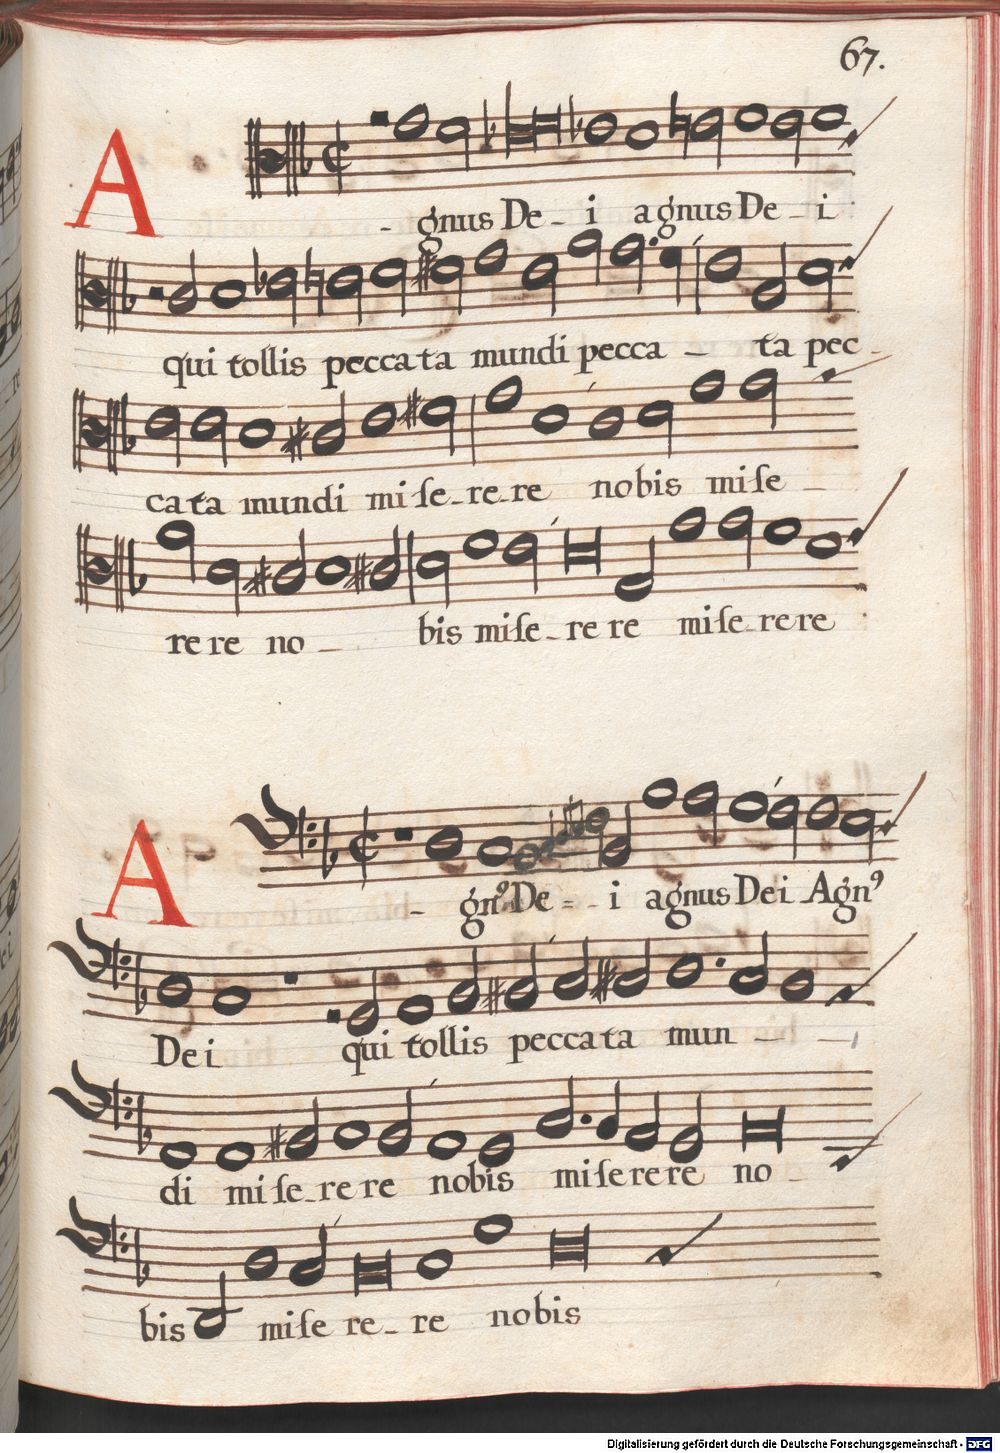 67.
A - gnus De - i agnus De - i
qui tollis peccata mundi pecca - ta pec -
cata mundi miſe - re - re nobis miſe -
rere no - bis miſe - rere miſe - rere
A - gnꝰ De = - i agnus Dei Agnꝰ
Dei qui tollis peccata mun - -
di miſe - rere nobis miſerere no -
bis miſe re - re nobis
Digitalisierung gefördert durch die Deutsche Forschungsgemeinschaft - DFG